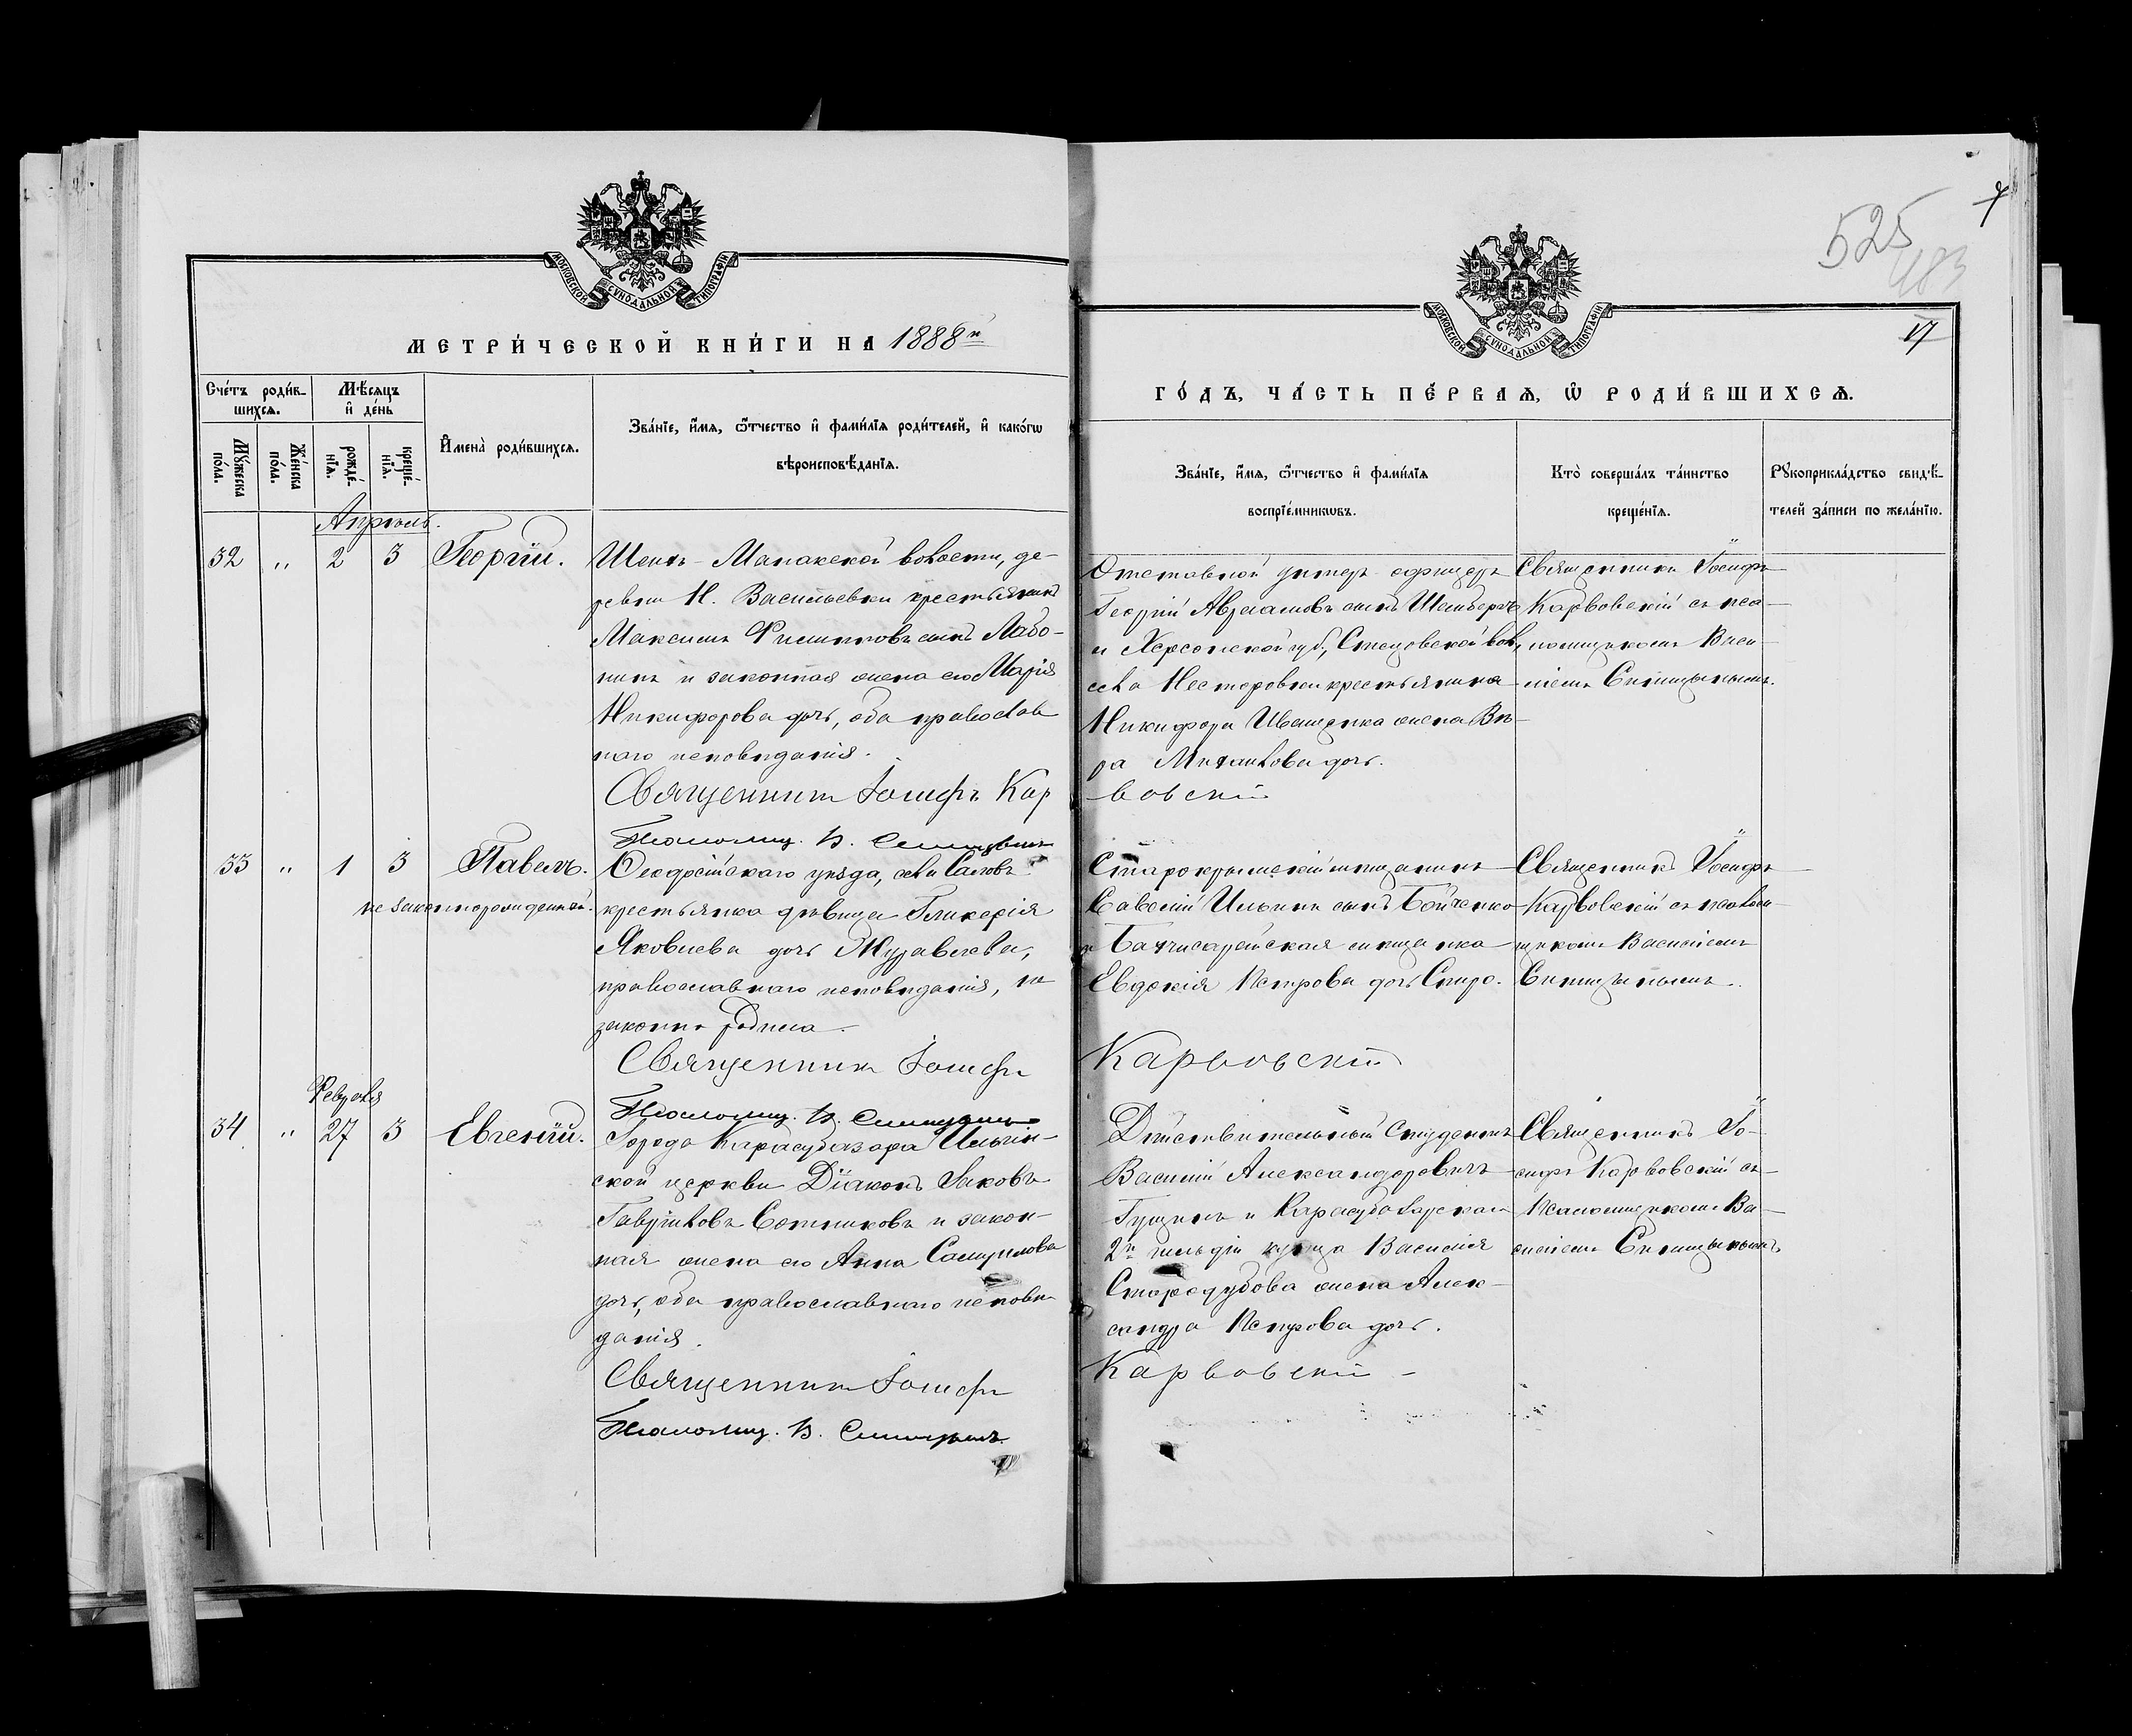 МОСКОВСКОЙ СУНОДАЛЬНОЙ ТИПОГРАФІИ
МЕТРИ́ЧЕСКОЙ КНИ́ГИ НА 1888й
Сче́тъ роди́в-
шихсѧ.
Мѣ́сѧцъ
и҆ де́нь
Мꙋ́жеска по́ла.
Же́нска по́ла.
рожде́-
нїѧ.
креще́-
нїѧ.
И҆мена̀ роди́вшихсѧ.
Зва́нїе, и҆́мѧ, ѻ҆́тчество и҆ фами́лїѧ роди́телей, и҆ како́гѡ
вѣроисповѣ́данїѧ.
Апрѣль.
32 " 2 3 Георгій.
Шейхъ-Манакской волости, де-
ревни Н. Васильевки крестьянинъ
Максимъ Филипповъ сынъ Лабо-
нинъ и законная жена его Марія
Никифорова дочь, оба православ
наго исповѣданія.
Священникъ Іосифъ Кар
Псаломщ. В. Синицынъ
33 " 1 3 Павелъ.
незаконнорожденный.
Ѳеодосійскаго уѣзда, села Саловъ
крестьянка дѣвица Гликерія
Яковлева дочь Журавлева,
православнаго исповѣданія, не
законно родила.
Священникъ Іосифъ
Псаломщ. В. Синицынъ
Февраля
34 " 27 3 Евгеній.
Города Карасубазара Ильин-
ской церкви Діаконъ Іаковъ
Гавріиловъ Сотниковъ и закон-
ная жена его Анна Самуилова
дочь, оба православнаго исповѣ
данія.
Священникъ Іосифъ
Псаломщ. В. Синицынъ.
525
483
17
МОСКОВСКОЙ СУНОДАЛЬНОЙ ТИПОГРАФІИ
ГО́ДЪ, ЧА́СТЬ ПЕ́РВАѦ, Ѡ҆ РОДИ́ВШИХСѦ.
Зва́нїе, и҆́мѧ, ѻ҆́тчество и҆ фами́лїѧ
воспрїе́мникѡвъ.
Кто̀ соверша́лъ та́инство
креще́нїѧ.
Рꙋкоприкла́дство свидѣ́-
телей за́писи по жела́нїю.
Отставной унтеръ офицеръ
Георгій Авраамовъ сынъ Шембергъ
и Херсонской губ., Стецовской вол,
села Нестеровки крестьянина
Никифора Иващенка жена Вѣ-
ра Михаилова дочь.
вовскій
Священникъ Іосифъ
Карвовскій съ пса-
ломщикомъ Васи-
ліемъ Синицынымъ.
Старокрымскій мѣщанинъ
Савелій Ильинъ сынъ Бойченко
и Бахчисарайская мѣщанка
Евдокія Петрова дочь Спиро.
Карвовскій
Священникъ Іосифъ
Карвовскій съ псалом-
щикомъ Василіемъ
Синицынымъ.
Дѣйствительный Студентъ
Василій Александровичъ
Гущинъ и Карасубазарскаго
2й гильдіи купца Василія
Стародубова жена Алек-
сандра Петрова дочь.
Карвовскій
Священникъ Іо-
сифъ Карвовскій съ
Псаломщикомъ Ва-
силіемъ Синицынымъ.